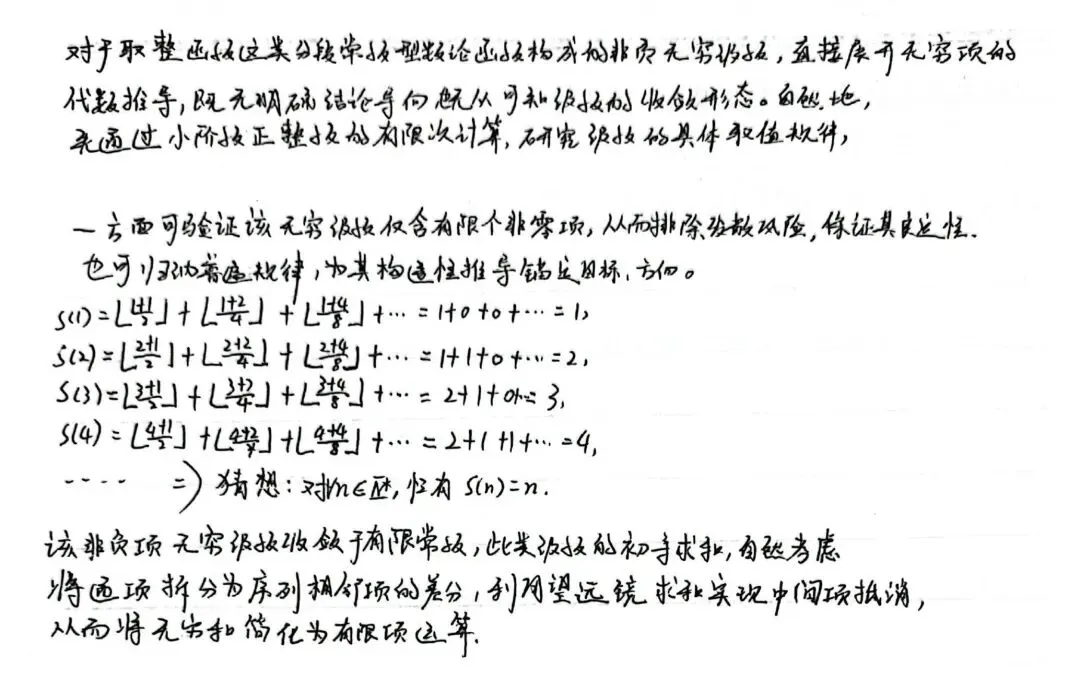 对于取整函数这类分段常数型数论函数构成的非负无穷级数，直接展开无穷项的
代数推导，既无明确结论导向也无从可知级数的收敛形态。自然地，
先通过小阶段正整数的有限次计算，研究级数的具体取值规律，
一方面可验证该无穷级数仅含有限个非零项，从而排除发散风险，保证其良定性.
也可归纳普遍规律，为其构造性推导锚定目标、方向。
S(1)=⌊(1+1)/2⌋+⌊(1+2)/4⌋+⌊(1+4)/8⌋+⋯=1+0+0+⋯=1,
S(2)=⌊(2+1)/2⌋+⌊(2+2)/4⌋+⌊(2+4)/8⌋+⋯=1+1+0+⋯=2,
S(3)=⌊(3+1)/2⌋+⌊(3+2)/4⌋+⌊(3+4)/8⌋+⋯=2+1+0+⋯=3,
S(4)=⌊(4+1)/2⌋+⌊(4+2)/4⌋+⌊(4+4)/8⌋+⋯=2+1+1+⋯=4,
---- ⇒猜想：对∀n∈ℤ⁺,恒有 S(n)=n.
该非负项无穷级数收敛于有限常数，此类级数的初等求和，自然考虑
将通项拆分为序列相邻项的差分，利用望远镜求和实现中间项抵消，
从而将无穷和简化为有限项运算.